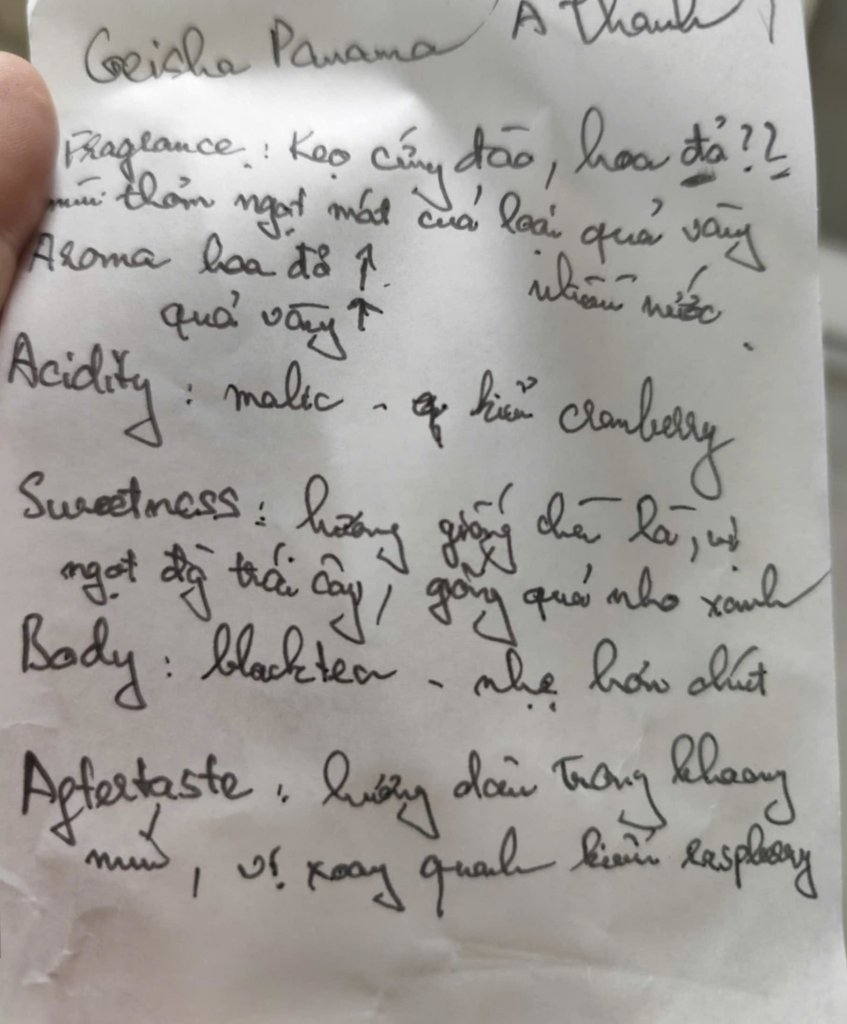 Geisha Panama A Thanh
Fragrance : Kẹo cứng đào, hoa đỏ??
mùi thơm ngọt mát của loại quả vàng
nhiều nước
Aroma hoa đỏ ↑
quả vàng ↑
Acidity : malic - kiểu cranberry
Sweetness : hương giống chè là, vị
ngọt trái cây, giống quả nho xanh
Body : blacktea - nhẹ hơn chút
Aftertaste : hương dài trong khoang
mũi, vị xoay quanh kiểu raspberry